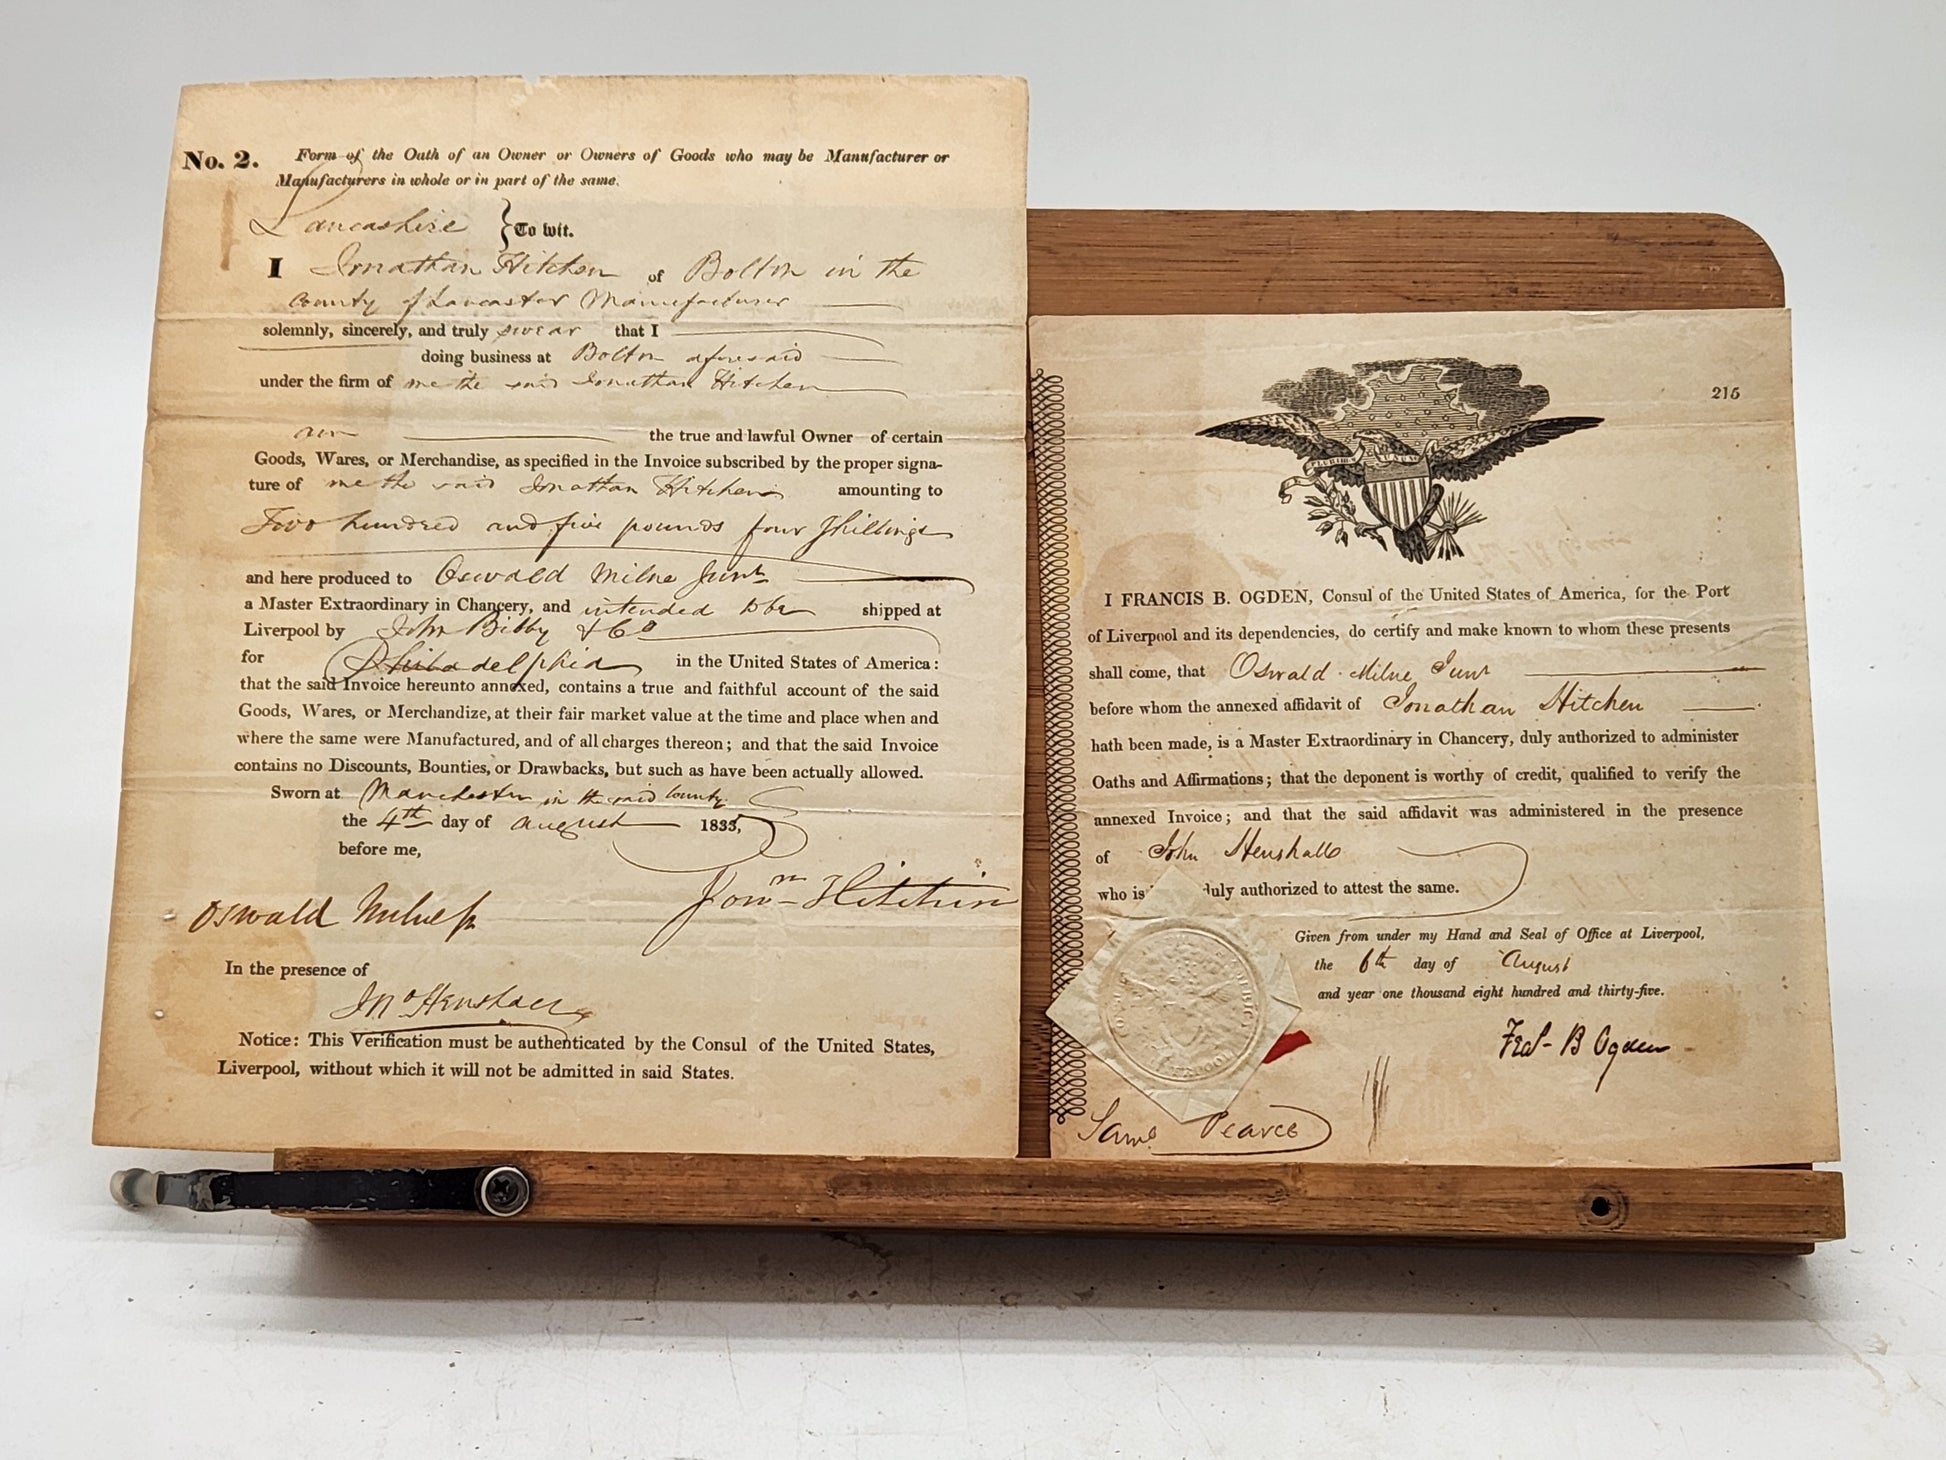 No. 2. Form of the Oath of an Owner or Owners of Goods who may be Manufacturer or
Manufacturers in whole or in part of the same.
Lancashire } To wit.
I Jonathan Hitchen of Bolton in the
County of Lancaster Manufacturer
solemnly, sincerely, and truly swear that I
doing business at Bolton aforesaid
under the firm of me the said Jonathan Hitchen
am the true and lawful Owner of certain
Goods, Wares, or Merchandise, as specified in the Invoice subscribed by the proper signa-
ture of me the said Jonathan Hitchen amounting to
Two hundred and five pounds four Shillings
and here produced to Oswald Milne Junr
a Master Extraordinary in Chancery, and intended to be shipped at
Liverpool by John Bibby & Co
for Philadelphia in the United States of America:
that the said Invoice hereunto annexed, contains a true and faithful account of the said
Goods, Wares, or Merchandize, at their fair market value at the time and place when and
where the same were Manufactured, and of all charges thereon; and that the said Invoice
contains no Discounts, Bounties, or Drawbacks, but such as have been actually allowed.
Sworn at Manchester in the said County
the 4th day of August 1835,
before me,
Jonn Hitchin
Oswald Milne Jr
In the presence of
Jno Henshall
Notice: This Verification must be authenticated by the Consul of the United States,
Liverpool, without which it will not be admitted in said States.
215
PLURIBUS UNUM
I FRANCIS B. OGDEN, Consul of the United States of America, for the Port
of Liverpool and its dependencies, do certify and make known to whom these presents
shall come, that Oswald Milne Junr
before whom the annexed affidavit of Jonathan Hitchen
hath been made, is a Master Extraordinary in Chancery, duly authorized to administer
Oaths and Affirmations; that the deponent is worthy of credit, qualified to verify the
annexed Invoice; and that the said affidavit was administered in the presence
of John Henshall
who is duly authorized to attest the same.
Given from under my Hand and Seal of Office at Liverpool,
the 6th day of August
and year one thousand eight hundred and thirty-five.
Fras B Ogden
Saml Pearce